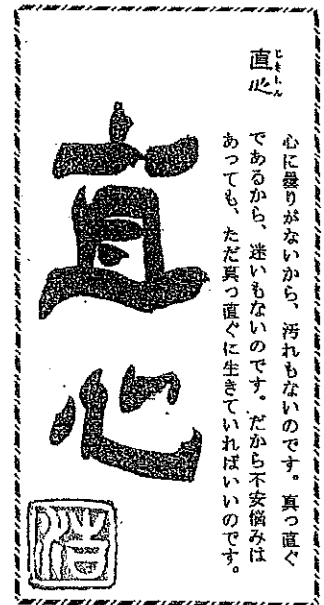 直心
じきしん
心に曇りがないから、汚れもないのです。真っ直ぐ
であるから、迷いもないのです。だから不安悩みは
あっても、ただ真っ直ぐに生きていればいいのです。
直心